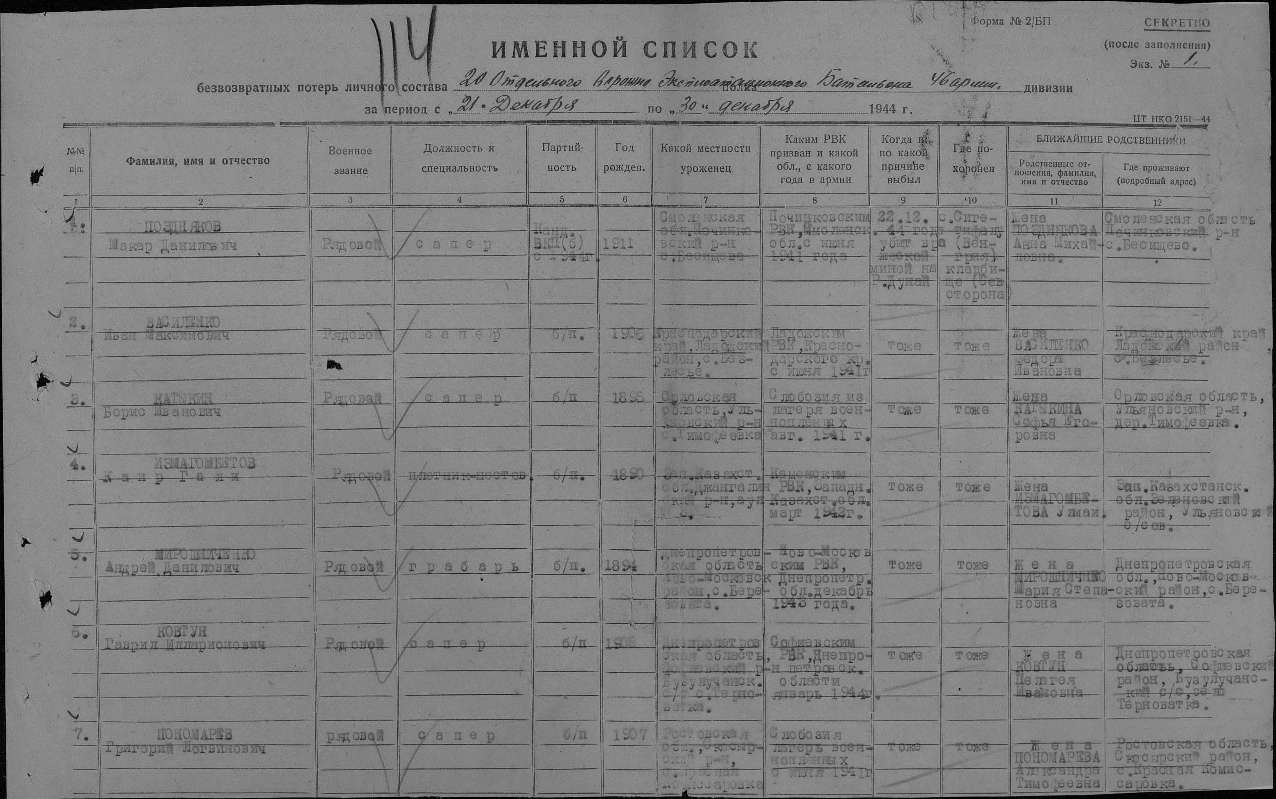 114
Форма № 2/БП
СЕКРЕТНО
(после заполнения)
Экз. № 1.
ИМЕННОЙ СПИСОК
безвозвратных потерь личного состава 20 Отдельного Дорожно Эксплоатационного Батальона 46 армии. дивизии
за период с „21" Декабря по „30" декабря 1944 г.
ЦТ НКО 2151—44
№№ п/п.
Фамилия, имя и отчество
Военное звание
Должность и специальность
Партий-ность
Год рожден.
Какой местности уроженец
Каким РВК призван и какой обл., с какого года в армии
Когда и по какой причине выбыл
Где по-хоронен
БЛИЖАЙШИЕ РОДСТВЕННИКИ
Родственные от-ношения, фамилия, имя и отчество
Где проживают (подробный адрес)
1 2 3 4 5 6 7 8 9 10 11 12
1. ПОЗДНЯКОВ
Макар Данилович
Рядовой
сапер
Канд.
ВКП(б)
с 1944г.
1911
Смоленская
обл.Починко-
вский р-н
с.Бесищево
Починковским
РВК,Смоленск.
обл.с июня
1941 года
22.12.
44 году
убит вра
жеской
миной на
Р.Дунай
с.Сиге-
тифалу
(Вен-
грия)
кладби-
ще (Сев
сторона)
Жена
ПОЗДНЯКОВА
Анна Михай-
ловна.
Смоленская область
Починковский р-н
с.Бесищево.
2. ВАСИЛЕНКО
Иван Максимович
Рядовой
сапер
б/п.
Краснодарский
край,Ладожский
район,с.
Ладожским
РВК,Красно-
дарского кр.
с июня 1941г
тоже
тоже
Жена
ВАСИЛЕНКО
Федора
Ивановна
Краснодарский край
Ладожский район
3. КАТЫКИН
Борис Иванович
Рядовой
сапер
б/п
Орловская
область,Уль-
яновский р-н
с.Тимофеевка
Слобозия из
лагеря воен-
нопленных
авг. 1941 г.
тоже
тоже
Жена
КАТЫКИНА
Софья Его-
ровна
Орловская область,
Ульяновский р-н,
дер.Тимофеевка.
4. ИЗМАГОМБЕТОВ
Каир Гали
Рядовой
плотник-мостов.
б/п.
1890
Зап.Казахст.
обл.Джангалин
ский р-н,аул
Каменским
РВК,Западн.
Казахст.обл.
март 1942г.
тоже
тоже
Жена
ИЗМАГОМБЕ-
ТОВА Улмаи.
Зап.Казахстанск.
обл.Зеленовский
район, Ульяновский
с/сов.
5. МИРОШНИЧЕНКО
Андрей Данилович
Рядовой
грабарь
б/п.
1894
Днепропетров-
ская область
Ново-Московск
район,с.Бере-
зовата.
Ново-Москов
ским РВК,
Днепропетр.
обл.декабрь
1943 года.
тоже
тоже
Жена
МИРОШНИЧЕНКО
Мария Степа-
новна
Днепропетровская
обл.,Ново-Москов-
ский район,с.Бере-
зовата.
6. КОВГУН
Гаврил Илларионович
Рядовой
сапер
б/п
Днепропетров
ская область,
Софиевский р-н
Бузулучанск.
с/с с.Терно-
ватка.
Софиевским
РВК,Днепро-
петровск.
области
январь 1944г.
тоже
тоже
Жена
КОВГУН
Пелагея
Ивановна
Днепропетровская
область, Софиевский
район, Бузулучанс-
кий с/с,село
Терноватка.
7. ПОНОМАРЕВ
Григорий Логвинович
рядовой
сапер
б/п
1907
Ростовская
обл.,Скосыр-
ский р-н,
с.Красная
Комиссаровка
Слобозия
лагерь воен-
нопленных
с июня 1941г
тоже
тоже
Жена
ПОНОМАРЕВА
Александра
Тимофеевна
Ростовская область,
Скосырский район,
с.Красная Комис-
саровка.